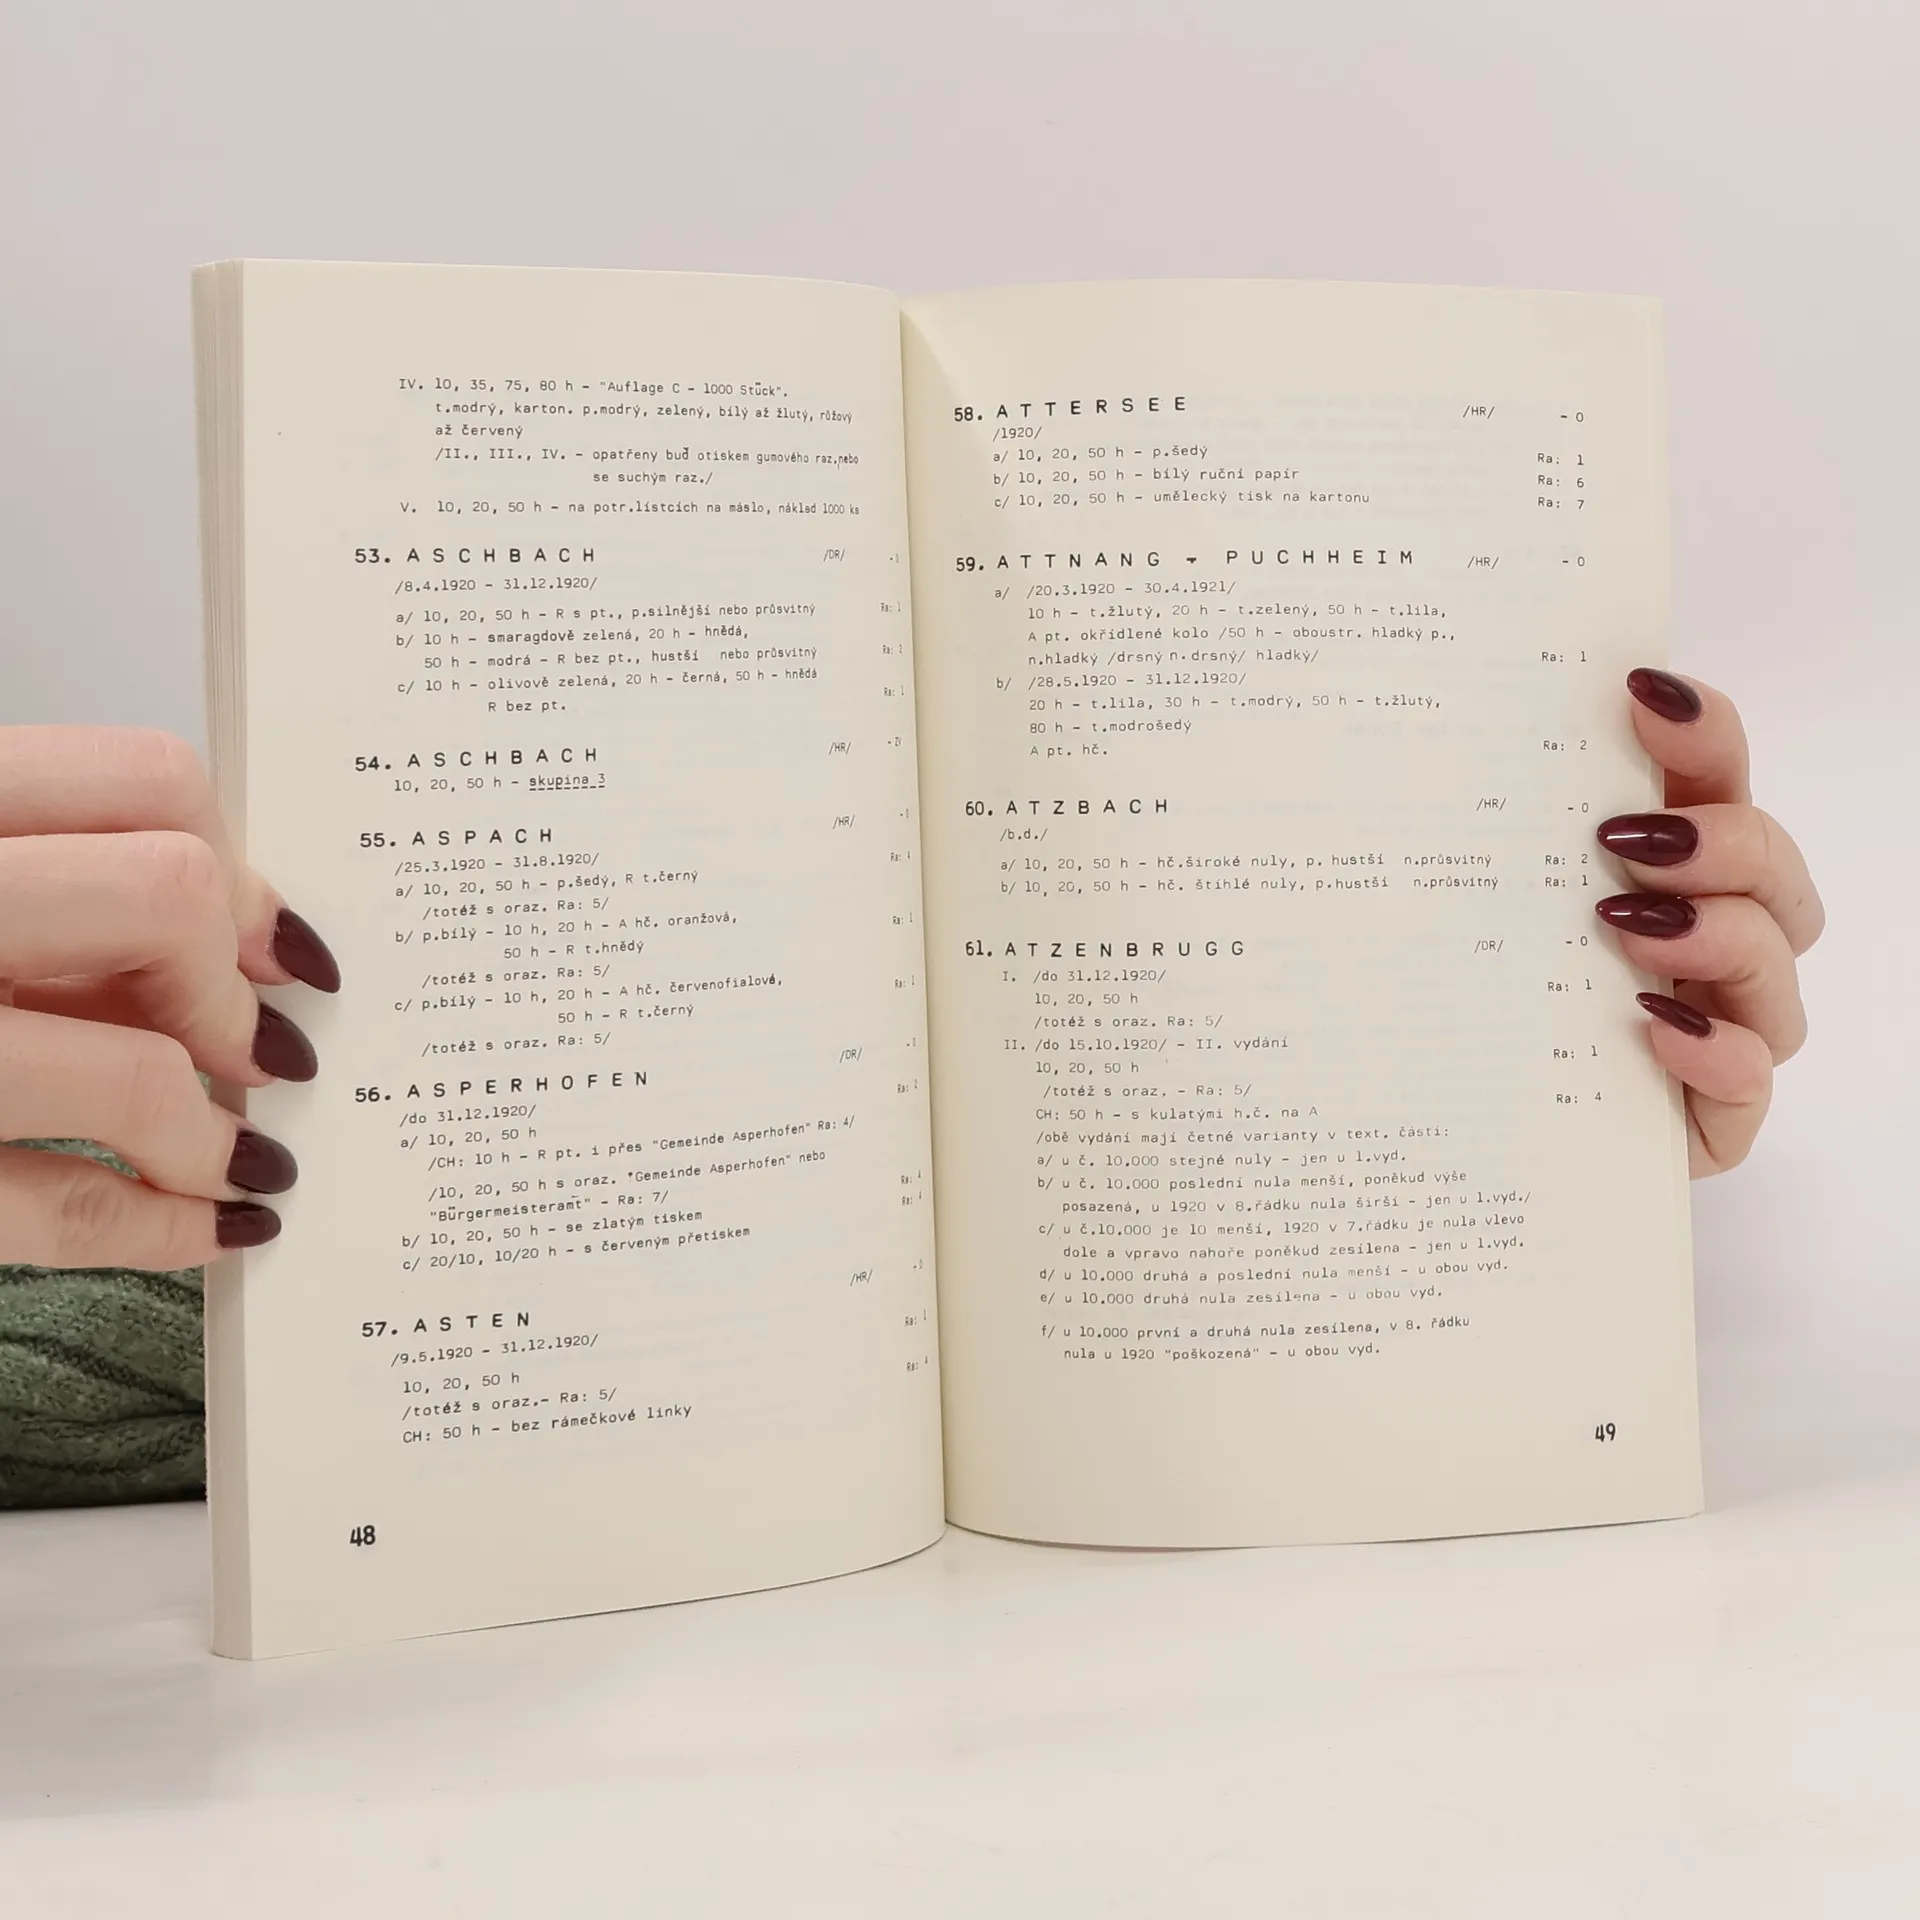 IV. 10, 35, 75, 80 h - "Auflage C - 1000 Stück".
t.modrý, karton. p.modrý, zelený, bílý až žlutý, růžový
až červený
/II., III., IV. - opatřeny buď otiskem gumového raz.nebo
se suchým raz./
V. 10, 20, 50 h - na potr.lístcích na máslo, náklad 1000 ks
53. ASCHBACH /DR/ - 0
/8.4.1920 - 31.12.1920/
a/ 10, 20, 50 h - R s pt., p.silnější nebo průsvitný Ra: 1
b/ 10 h - smaragdově zelená, 20 h - hnědá,
50 h - modrá - R bez pt., hustší nebo průsvitný Ra: 2
c/ 10 h - olivově zelená, 20 h - černá, 50 h - hnědá
R bez pt. Ra: 1
54. ASCHBACH /HR/ - ZV
10, 20, 50 h - skupina 3
55. ASPACH /HR/ - 0
/25.3.1920 - 31.8.1920/
a/ 10, 20, 50 h - p.šedý, R t.černý Ra: 4
/totéž s oraz. Ra: 5/
b/ p.bílý - 10 h, 20 h - A hč. oranžová,
50 h - R t.hnědý Ra: 1
/totéž s oraz. Ra: 5/
c/ p.bílý - 10 h, 20 h - A hč. červenofialové,
50 h - R t.černý Ra: 1
/totéž s oraz. Ra: 5/
56. ASPERHOFEN /DR/ - 0
/do 31.12.1920/
a/ 10, 20, 50 h Ra: 2
/CH: 10 h - R pt. i přes "Gemeinde Asperhofen" Ra: 4/
/10, 20, 50 h s oraz. "Gemeinde Asperhofen" nebo
"Bürgermeisteramt" - Ra: 7/
b/ 10, 20, 50 h - se zlatým tiskem Ra: 4
c/ 20/10, 10/20 h - s červeným přetiskem Ra: 4
57. ASTEN /HR/ - 0
/9.5.1920 - 31.12.1920/
10, 20, 50 h Ra: 1
/totéž s oraz.- Ra: 5/
CH: 50 h - bez rámečkové linky Ra: 4
48
58. ATTERSEE /HR/ - 0
/1920/
a/ 10, 20, 50 h - p.šedý Ra: 1
b/ 10, 20, 50 h - bílý ruční papír Ra: 6
c/ 10, 20, 50 h - umělecký tisk na kartonu Ra: 7
59. ATTNANG - PUCHHEIM /HR/ - 0
a/ /20.3.1920 - 30.4.1921/
10 h - t.žlutý, 20 h - t.zelený, 50 h - t.lila,
A pt. okřídlené kolo /50 h - oboustr. hladký p.,
n.hladký /drsný n.drsný/ hladký/ Ra: 1
b/ /28.5.1920 - 31.12.1920/
20 h - t.lila, 30 h - t.modrý, 50 h - t.žlutý,
80 h - t.modrošedý
A pt. hč. Ra: 2
60. ATZBACH /HR/ - 0
/b.d./
a/ 10, 20, 50 h - hč.široké nuly, p. hustší n.průsvitný Ra: 2
b/ 10, 20, 50 h - hč. štíhlé nuly, p.hustší n.průsvitný Ra: 1
61. ATZENBRUGG /DR/ - 0
I. /do 31.12.1920/
10, 20, 50 h Ra: 1
/totéž s oraz. Ra: 5/
II. /do 15.10.1920/ - II. vydání
10, 20, 50 h Ra: 1
/totéž s oraz. - Ra: 5/
CH: 50 h - s kulatými h.č. na A Ra: 4
/obě vydání mají četné varianty v text. části:
a/ u č. 10.000 stejné nuly - jen u 1.vyd.
b/ u č. 10.000 poslední nula menší, poněkud výše
posazená, u 1920 v 8.řádku nula širší - jen u 1.vyd./
c/ u č.10.000 je 10 menší, 1920 v 7.řádku je nula vlevo
dole a vpravo nahoře poněkud zesílena - jen u 1.vyd.
d/ u 10.000 druhá a poslední nula menší - u obou vyd.
e/ u 10.000 druhá nula zesílena - u obou vyd.
f/ u 10.000 první a druhá nula zesílena, v 8. řádku
nula u 1920 "poškozená" - u obou vyd.
49